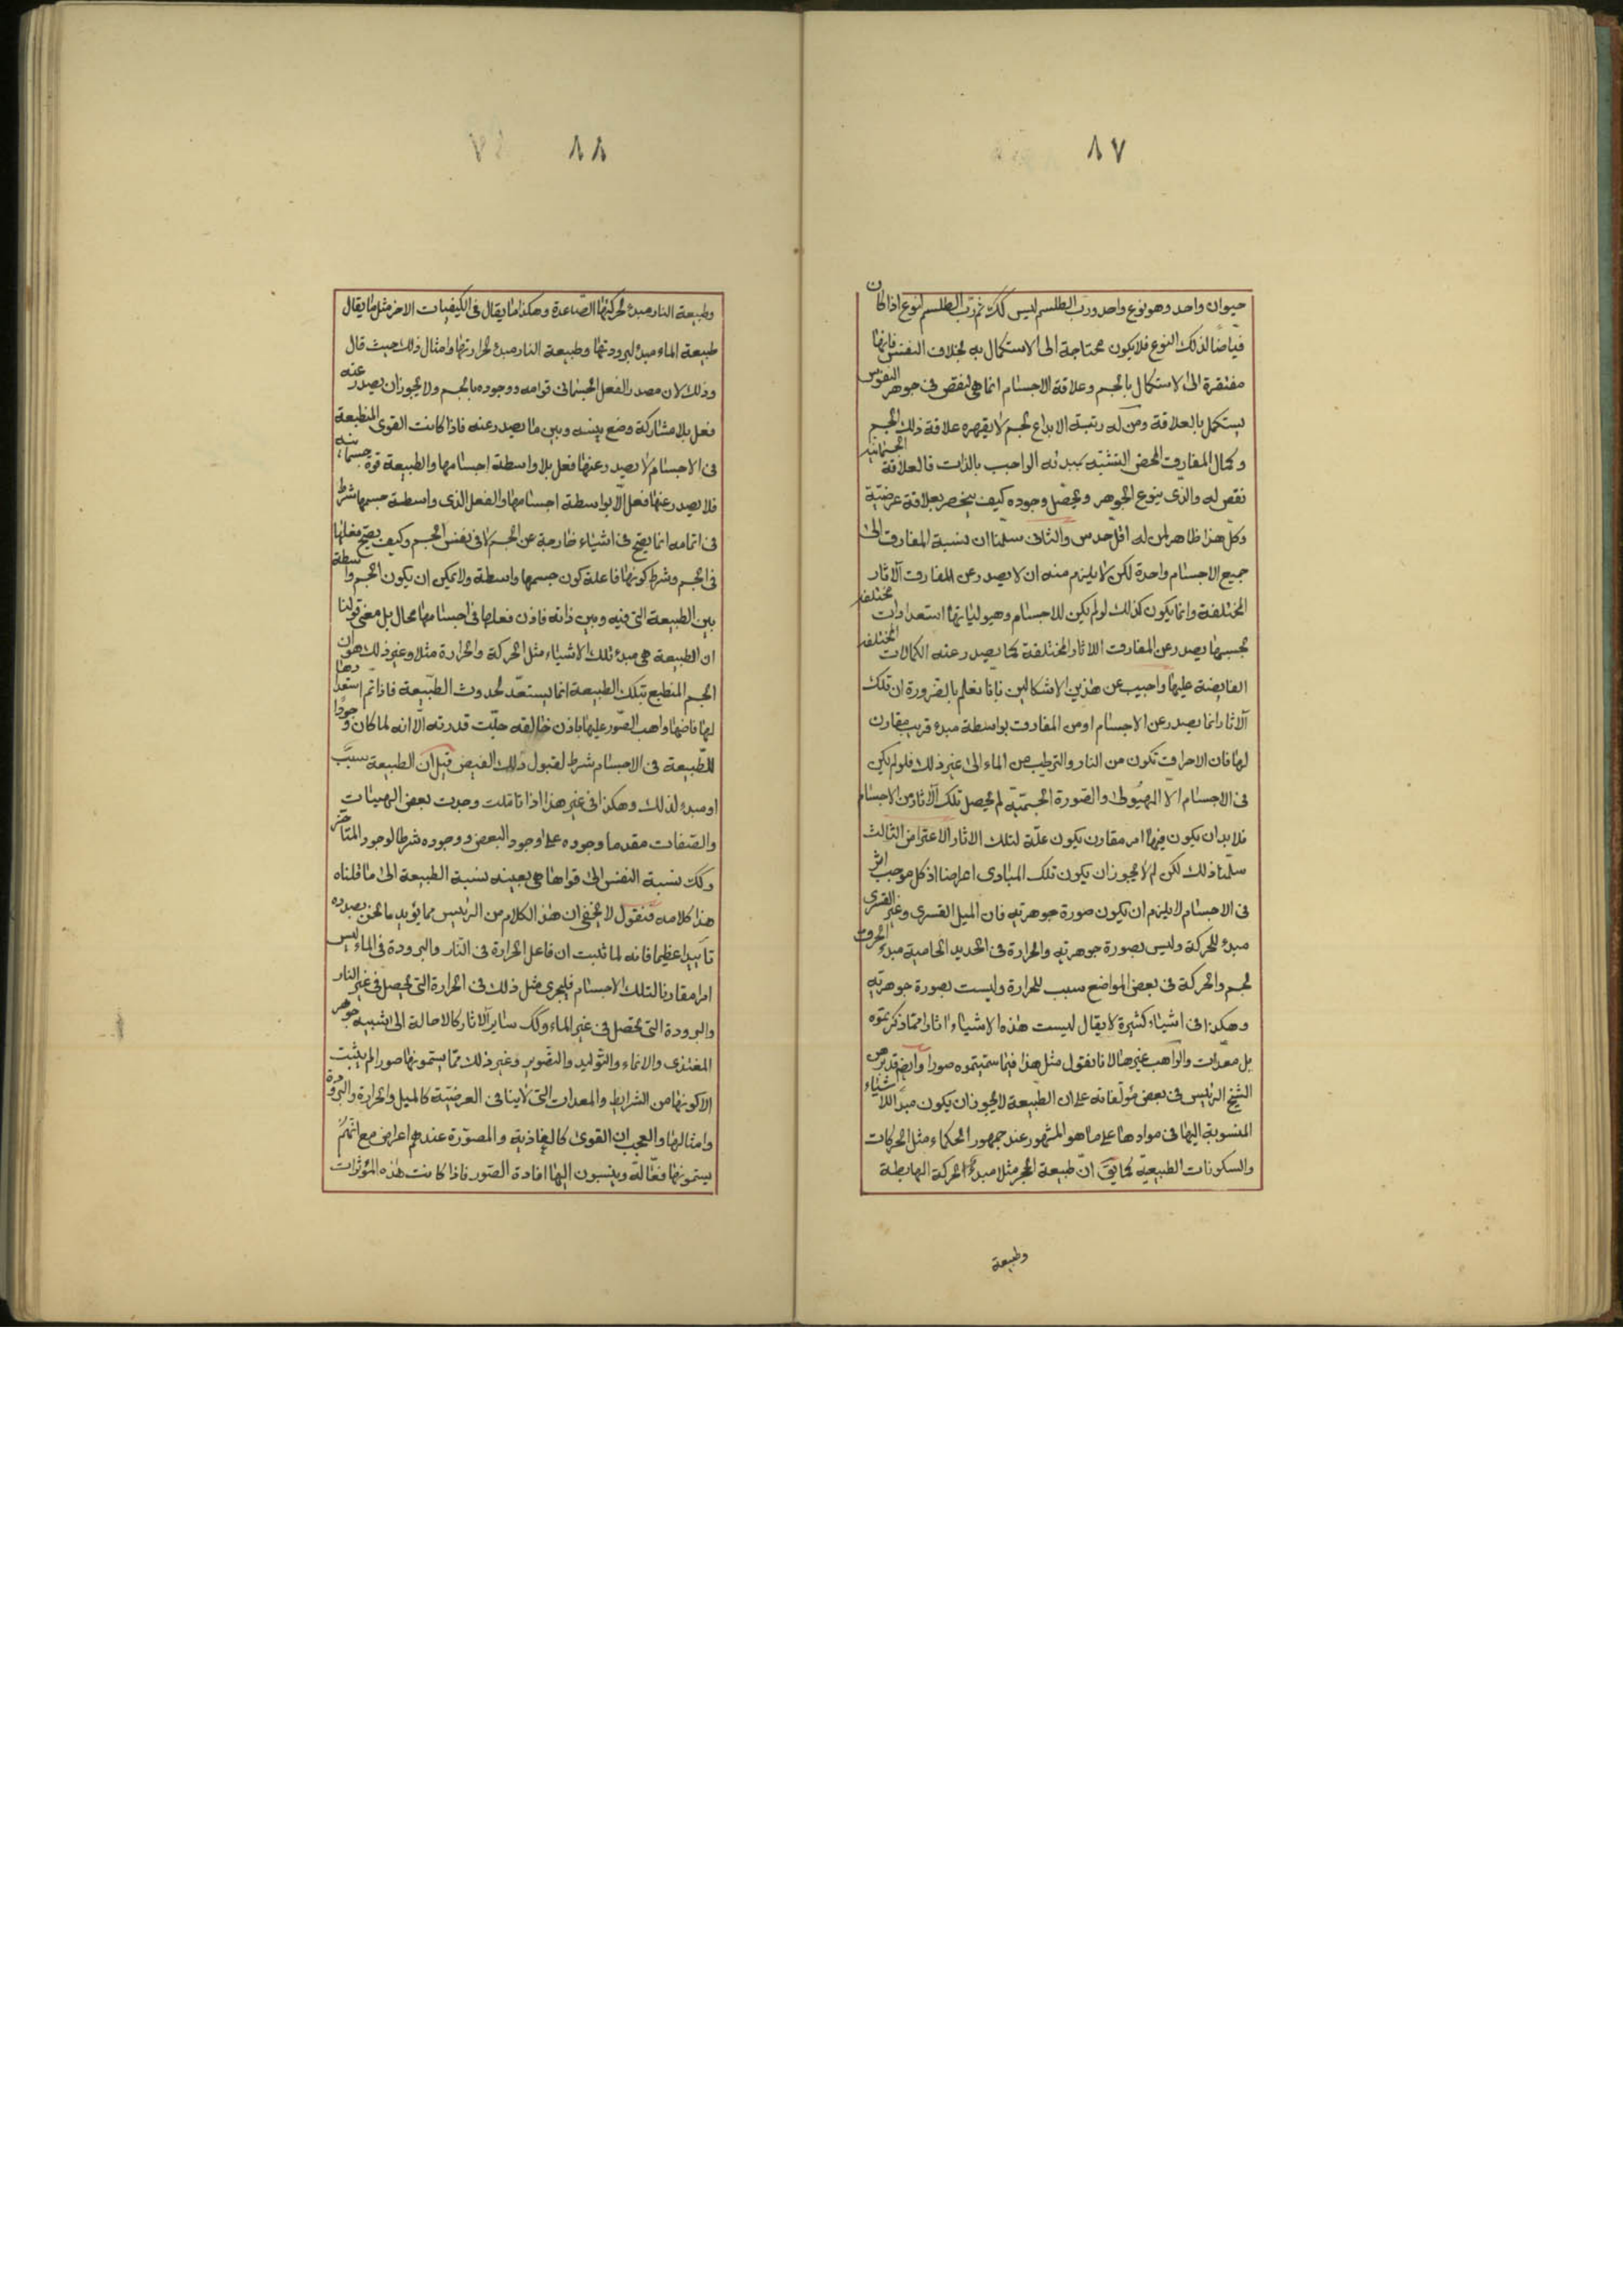 ٨٧
حيوان واحد وهو نوع واحد ورب الطلسم ليس كك ثم رب الطلسم لنوع اذا كان
فياضا لذلك النوع فلا يكون محتاجة الى الاستكمال به بخلاف النفس فانها
مفتقرة الى الاستكمال بالجسم وعلاقة الاجسام انما هى لنقص فى جوهر النفوس
يستكمل بالعلاقة ومن له رتبة الابداع لجسم لا يقهره علاقة ذلك الجسم
وكمال المفارق المحض التشبه بمبدئه الواجب بالذات فالعلاقة الجسمانية
نقص له والذى ينوع الجوهر ويحصل وجوده كيف ينحصر بعلاقة عرضية
وكل هذا ظاهر لمن له اقل حدس والثانى سلمنا ان نسبة المفارق الى
جميع الاجسام واحدة لكن لا يلزم منه ان لا يصدر عن المفارق الآثار
المختلفة وانما يكون كذلك لو لم يكن للاجسام وهيولياتها استعدادات مختلفة
بحسبها يصدر عن المفارق الآثار المختلفة كما يصدر عنه الكمالات المختلفة
الفايضة عليها واجيب عن هذين الاشكالين بانا نعلم بالضرورة ان تلك
الآثار انما يصدر عن الاجسام او من المفارق بواسطة مبدء قريب مقارن
لها فان الاحراق تكون من النار والترطيب من الماء الى غير ذلك فلو لم يكن
فى الاجسام الا الهيولى والصورة الجسمية لم يحصل تلك الآثار من الاجسام
فلا بد ان يكون فيها امر مقارن يكون علة لتلك الاثار الاعتراض الثالث
سلمنا ذلك لكن لم لا يجوز ان يكون تلك المبادى اعراضا اذ كل موجب اثر
فى الاجسام لا يلزم ان يكون صورة جوهرية فان الميل القسرى وغير القسرى
مبدء للحركة وليس بصورة جوهرية والحرارة فى الحديد الحامية مبدء الحرق
لجسم والحركة فى بعض المواضع سبب للحرارة وليست بصورة جوهرية
وهكذا فى اشياء كثيرة لا يقال ليست هذه الاشياء اثارا مما ذكرتموه
بل معدات والواهب غيرها لانا نقول مثل هذا فيما سميتموه صورا وايضا قد برهن
الشيخ الرئيس فى بعض مؤلفاته على ان الطبيعة لا يجوز ان يكون مبدأ للاشياء
المنسوبة اليها فى موادها على ما هو المشهور عند جمهور الحكماء مثل الحركات
والسكونات الطبيعية كما يق ان طبيعة الحجر مثلا مبدء الحركة الهابطة
وطبيعة
٨٨
وطبيعة النار مبدء لحركتها الصاعدة وهكذا ما يقال فى الكيفيات الاخر مثل ما يقال
طبيعة الماء مبدء لبرودتها وطبيعة النار مبدء لحرارتها وامثال ذلك حيث قال
وذلك لان مصدر الفعل الجسمانى قوامه ووجوده بالجسم ولا يجوز ان يصدر عنه
فعل بلا مشاركة وضع بينه وبين ما يصدر عنه فاذا كانت القوى المنطبعة
فى الاجسام لا يصدر عنها فعل بلا واسطة اجسامها والطبيعة قوة جسمانية
فلا يصدر عنها فعل الا بواسطة اجسامها والفعل الذى واسطة جسمها شرط
فى اتمامه انما يصح فى اشياء خارجة عن الجسم لا فى نفس الجسم وكيف يصح فعلها
فى الجسم وشرط كونها فاعلة كون جسمها واسطة ولا يمكن ان يكون الجسم واسطة
بين الطبيعة التى فيه وبين ذاته فاذن فعلها فى اجسامها محال بل معنى قولنا
ان الطبيعة هى مبدء تلك الاشياء مثل الحركة والحرارة مثلا وغير ذلك هو ان
الجسم المنطبع بتلك الطبيعة انما يستعد لحدوث الطبيعة فاذا تم استعدادها
لها فاضها واهب الصور عليها باذن خالقه جلت قدرته الا انه لما كان وجودا
للطبيعة فى الاجسام شرط لقبول ذلك الفيض قيل ان الطبيعة سبب
او مبدء لذلك وهكذا فى غير هذا اذا تاملت وجدت بعض الهيئات
والصفات مقدما وجوده على وجود البعض ووجوده شرطا لوجود المتأخر
وكك نسبة النفس الى قواها هى بعينه نسبة الطبيعة الى ما قلناه
هذا كلامه فنقول لا يخفى ان هذا الكلام من الرئيس مما يؤيد ما نحن بصدده
تاييدا عظيما فانه لما ثبت ان فاعل الحرارة فى النار والبرودة فى الماء ليس
امرا مقارنا لتلك الاجسام فليجرى مثل ذلك فى الحرارة التى يحصل فى غير النار
والبرودة التى تحصل فى غير الماء وكك ساير الآثار كالاحالة الى شبيه جوهر
المغتذى والانماء والتوليد والتصوير وغير ذلك مما يسمونها صورا لم يثبت
الا كونها من الشرايط والمعدات التى لا ينافى العرضية كالميل والحرارة والبرودة
وامثالها والعجب ان القوى كالغاذية والمصورة عندهم اعراض مع انهم
يسمونها فعالة وينسبون اليها افادة الصور فاذا كانت هذه المؤثرات